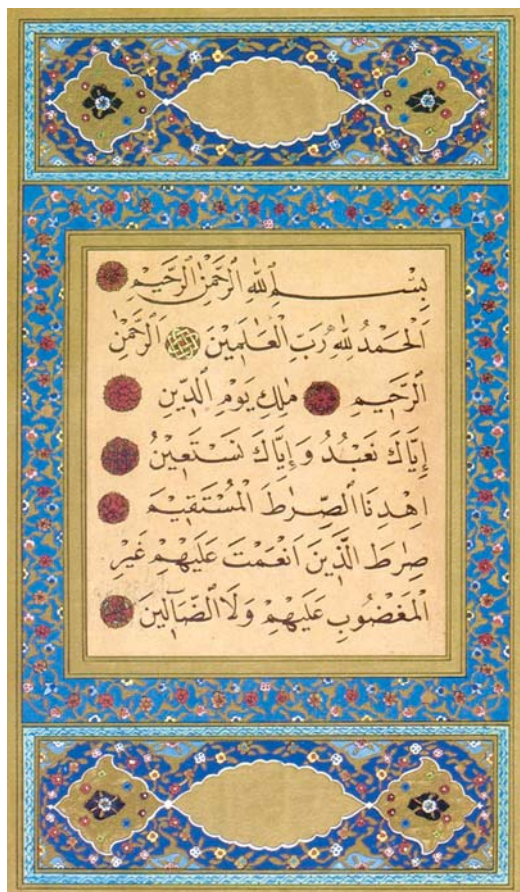 بِسْمِ ٱللهِ ٱلرَّحْمٰنِ ٱلرَّحٖيمِ
اَلْحَمْدُ لِلّٰهِ رَبِّ الْعَالَمٖينَ اَلرَّحْمٰنِ
الرَّحٖيمِ مٰلِكِ يَوْمِ الدّٖينِ
اِيَّاكَ نَعْبُدُ وَاِيَّاكَ نَسْتَعٖينُ
اِهْدِنَا الصِّرٰطَ الْمُسْتَقٖيمَ
صِرٰطَ الَّذٖينَ اَنْعَمْتَ عَلَيْهِمْ غَيْرِ
الْمَغْضُوبِ عَلَيْهِمْ وَلَا الضَّٓالّٖينَ